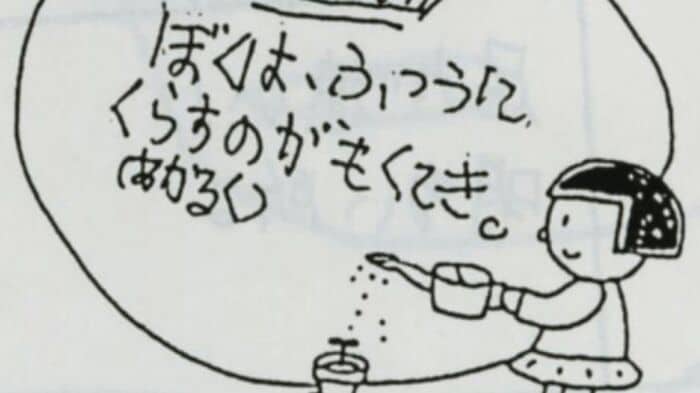 ぼくは、ふつうに、
くらすのがもくてき。
あかるく